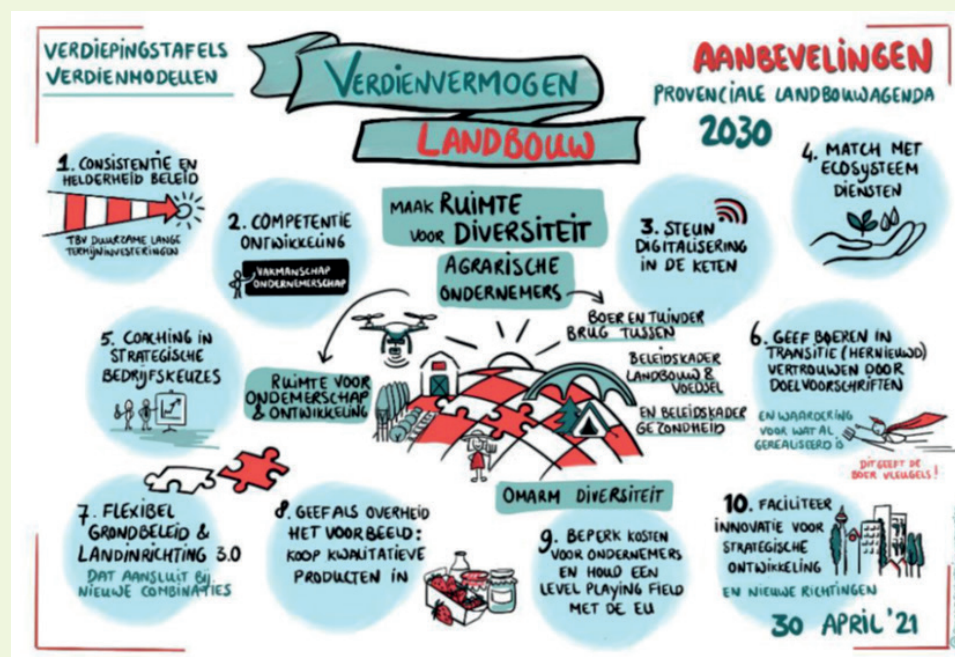 VERDIEPINGSTAFELS
VERDIENMODELLEN
VERDIENVERMOGEN
LANDBOUW
AANBEVELINGEN
PROVINCIALE LANDBOUWAGENDA
2030
1. CONSISTENTIE EN
HELDERHEID BELEID
TBV DUURZAME LANGE
TERMIJNINVESTERINGEN
2. COMPETENTIE
ONTWIKKELING
VAKMANSCHAP
ONDERNEMERSCHAP
MAAK RUIMTE
VOOR DIVERSITEIT
AGRARISCHE
ONDERNEMERS
3. STEUN
DIGITALISERING
IN DE KETEN
4. MATCH MET
ECOSYSTEEM
DIENSTEN
5. COACHING IN
STRATEGISCHE
BEDRIJFSKEUZES
RUIMTE VOOR
ONDEMERSCHAP
& ONTWIKKELING
BOER EN TUINDER
BRUG TUSSEN
BELEIDSKADER
LANDBOUW &
VOEDSEL
EN BELEIDSKADER
GEZONDHEID
6. GEEF BOEREN IN
TRANSITIE (HERNIEUWD)
VERTROUWEN DOOR
DOELVOORSCHRIFTEN
EN WAARDERING
VOOR WAT AL
GEREALISEERD IS
DIT GEEFT DE
BOER VLEUGELS!
OMARM DIVERSITEIT
7. FLEXIBEL
GRONDBELEID &
LANDINRICHTING 3.0
DAT AANSLUIT BIJ
NIEUWE COMBINATIES
8. GEEF ALS OVERHEID
HET VOORBEELD:
KOOP KWALITATIEVE
PRODUCTEN IN
9. BEPERK KOSTEN
VOOR ONDERNEMERS
EN HOUD EEN
LEVEL PLAYING FIELD
MET DE EU
10. FACILITEER
INNOVATIE VOOR
STRATEGISCHE
ONTWIKKELING
EN NIEUWE RICHTINGEN
30 APRIL '21